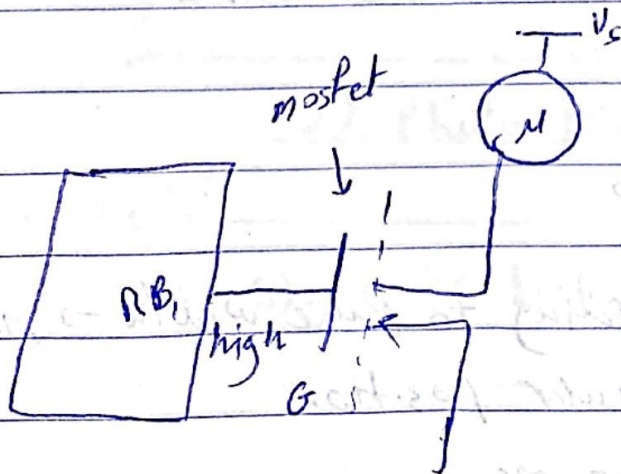 Vs
mosfet
M
RB1
high
G